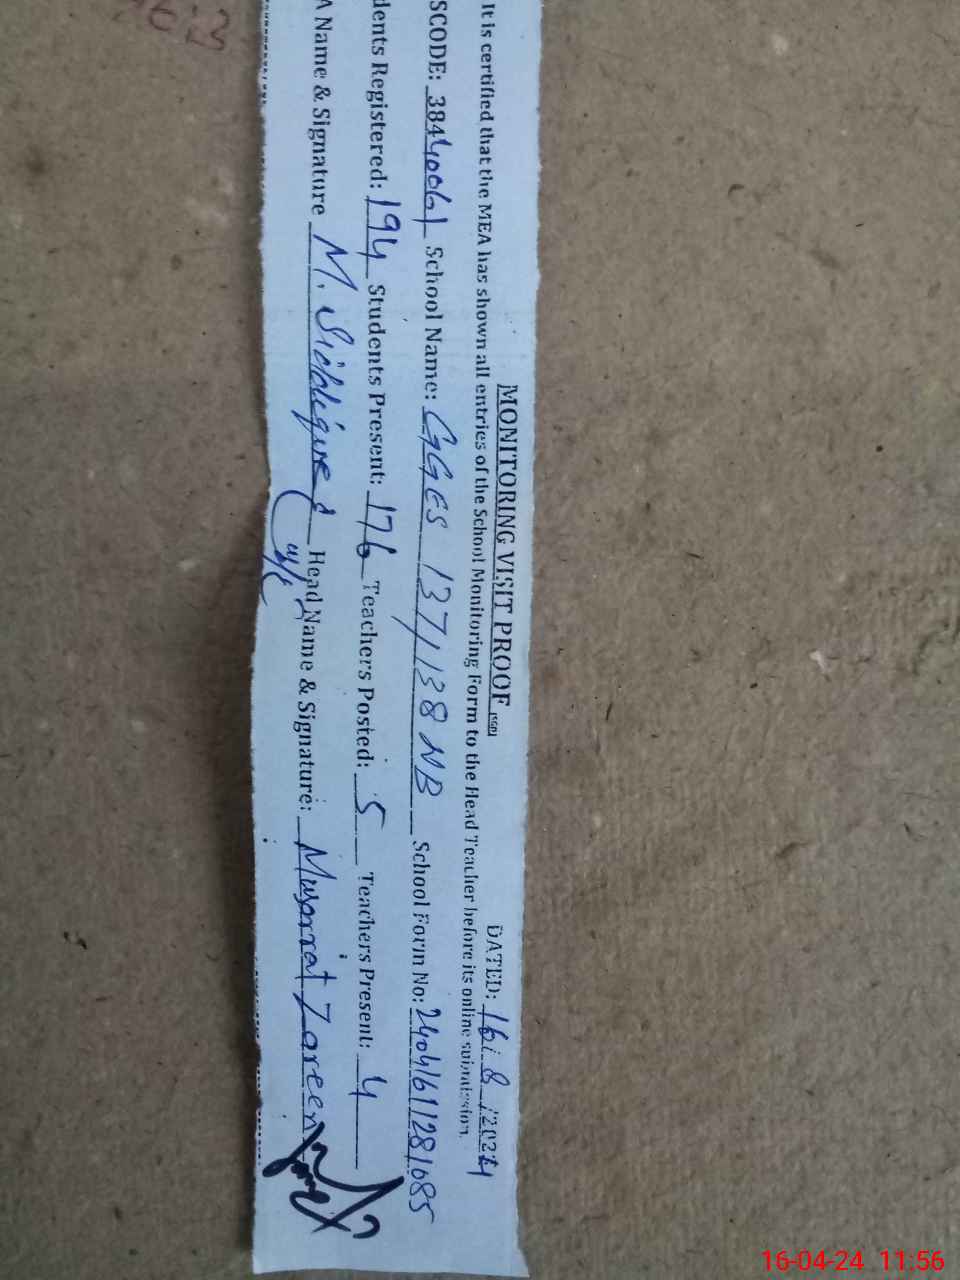 MONITORING VISIT PROOF
DATED: 16/8/2024
It is certified that the MEA has shown all entries of the School Monitoring Form to the Head Teacher before its online submission.
SCODE: 38440061 School Name: GGES 137/138 NB School Form No: 24041611281085
dents Registered: 194 Students Present: 176 Teachers Posted: 5 Teachers Present: 4
A Name & Signature M. Siddique Head Name & Signature: Musarrat Zareen
16-04-24 11:56